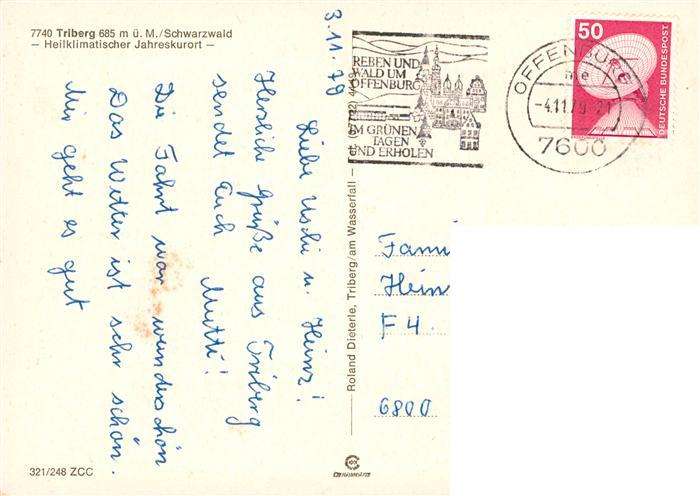 7740 Triberg 685 m ü. M./Schwarzwald
— Heilklimatischer Jahreskurort —
3.11.79
Liebe Uschi u. Heinz!
Herzliche Grüße aus Triberg
sendet Euch Mutti!
Die Fahrt war wunderschön
Das Wetter ist sehr schön.
Mir geht es gut
321/248 ZCC
Roland Dieterle, Triberg/am Wasserfall
REBEN UND
WALD UM
OFFENBURG
IM GRÜNEN
TAGEN
UND ERHOLEN
OFFENBURG
-4.11.79-21
7600
50
DEUTSCHE BUNDESPOST
Fami
Hein
F 4.
6800